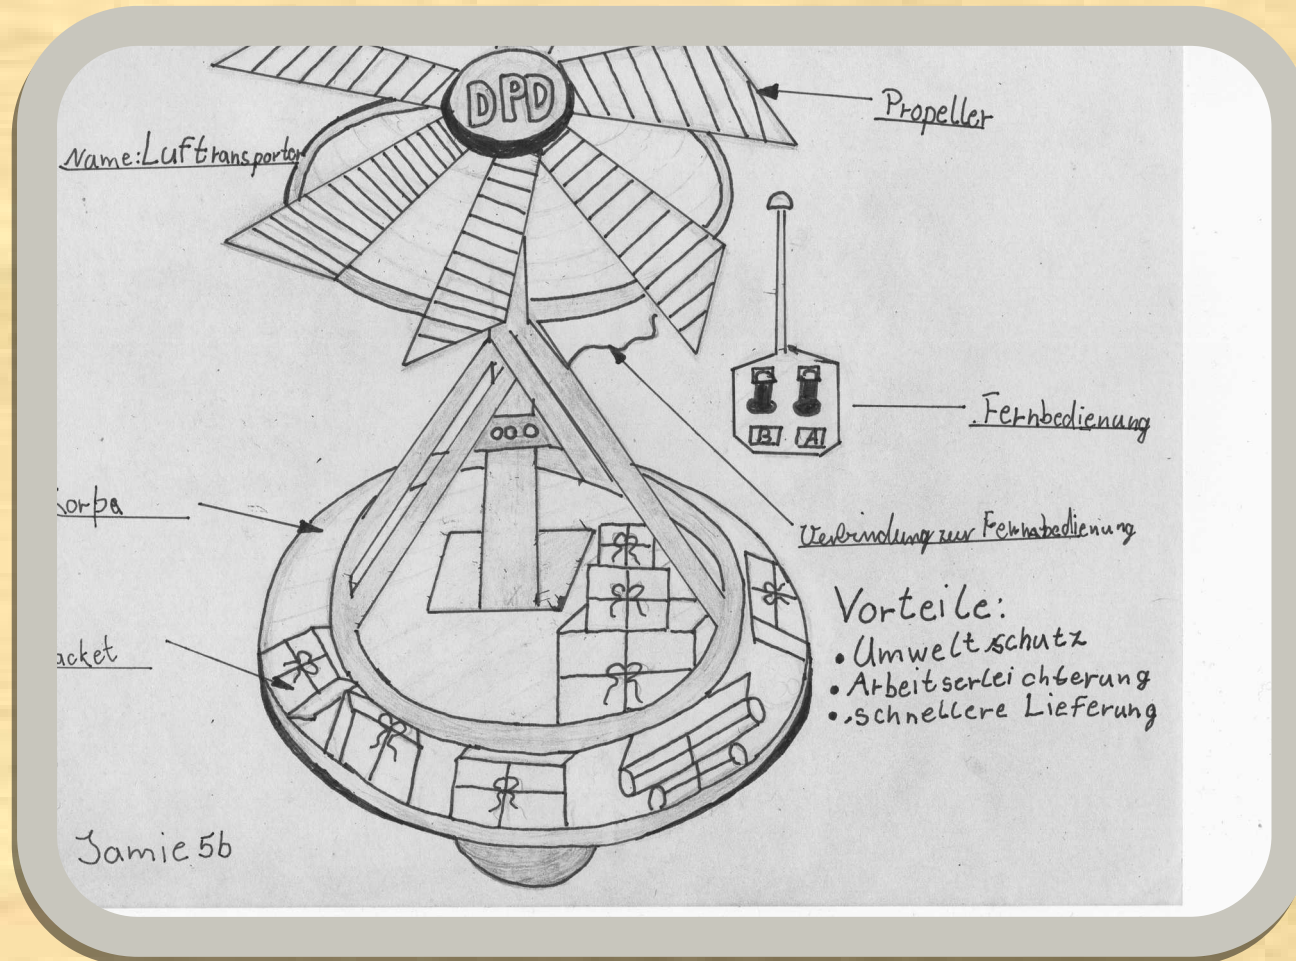 DPD
Propeller
Name:Lufttransporter
Fernbedienung
B A
orpa
Verbindung zur Fernabedienung
Vorteile:
• Umweltschutz
• Arbeitserleichterung
• schnellere Lieferung
acket
Jamie 5b